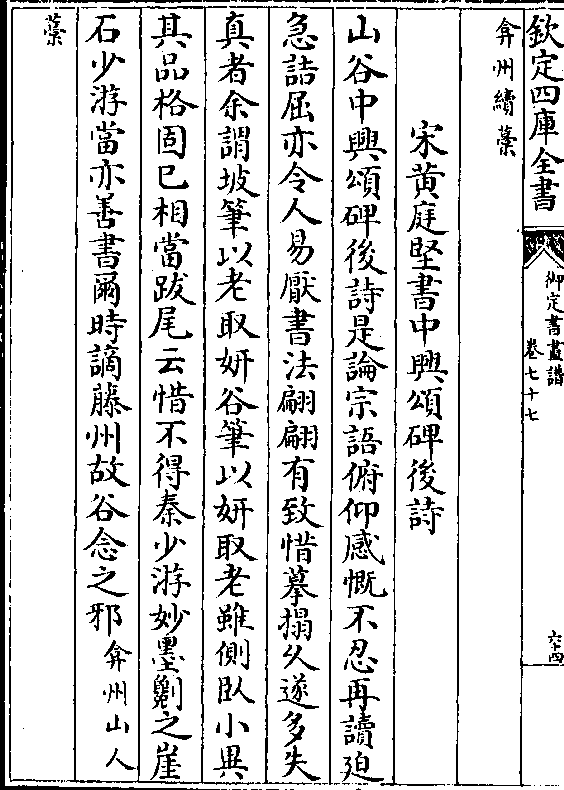 欽定四庫全書
御定書畫譜
卷七十七
六十四
弇州續藁
宋黃庭堅書中興頌碑後詩
山谷中興頌碑後詩是論宗語俯仰感慨不忍再讀廹
急詰屈亦令人易厭書法翩翩有致惜摹搨久遂多失
真者余謂坡筆以老取妍谷筆以妍取老雖側卧小異
其品格固已相當跋尾云惜不得秦少游妙墨劖之崖
石少游當亦善書爾時謫藤州故谷念之邪弇州山人
藁